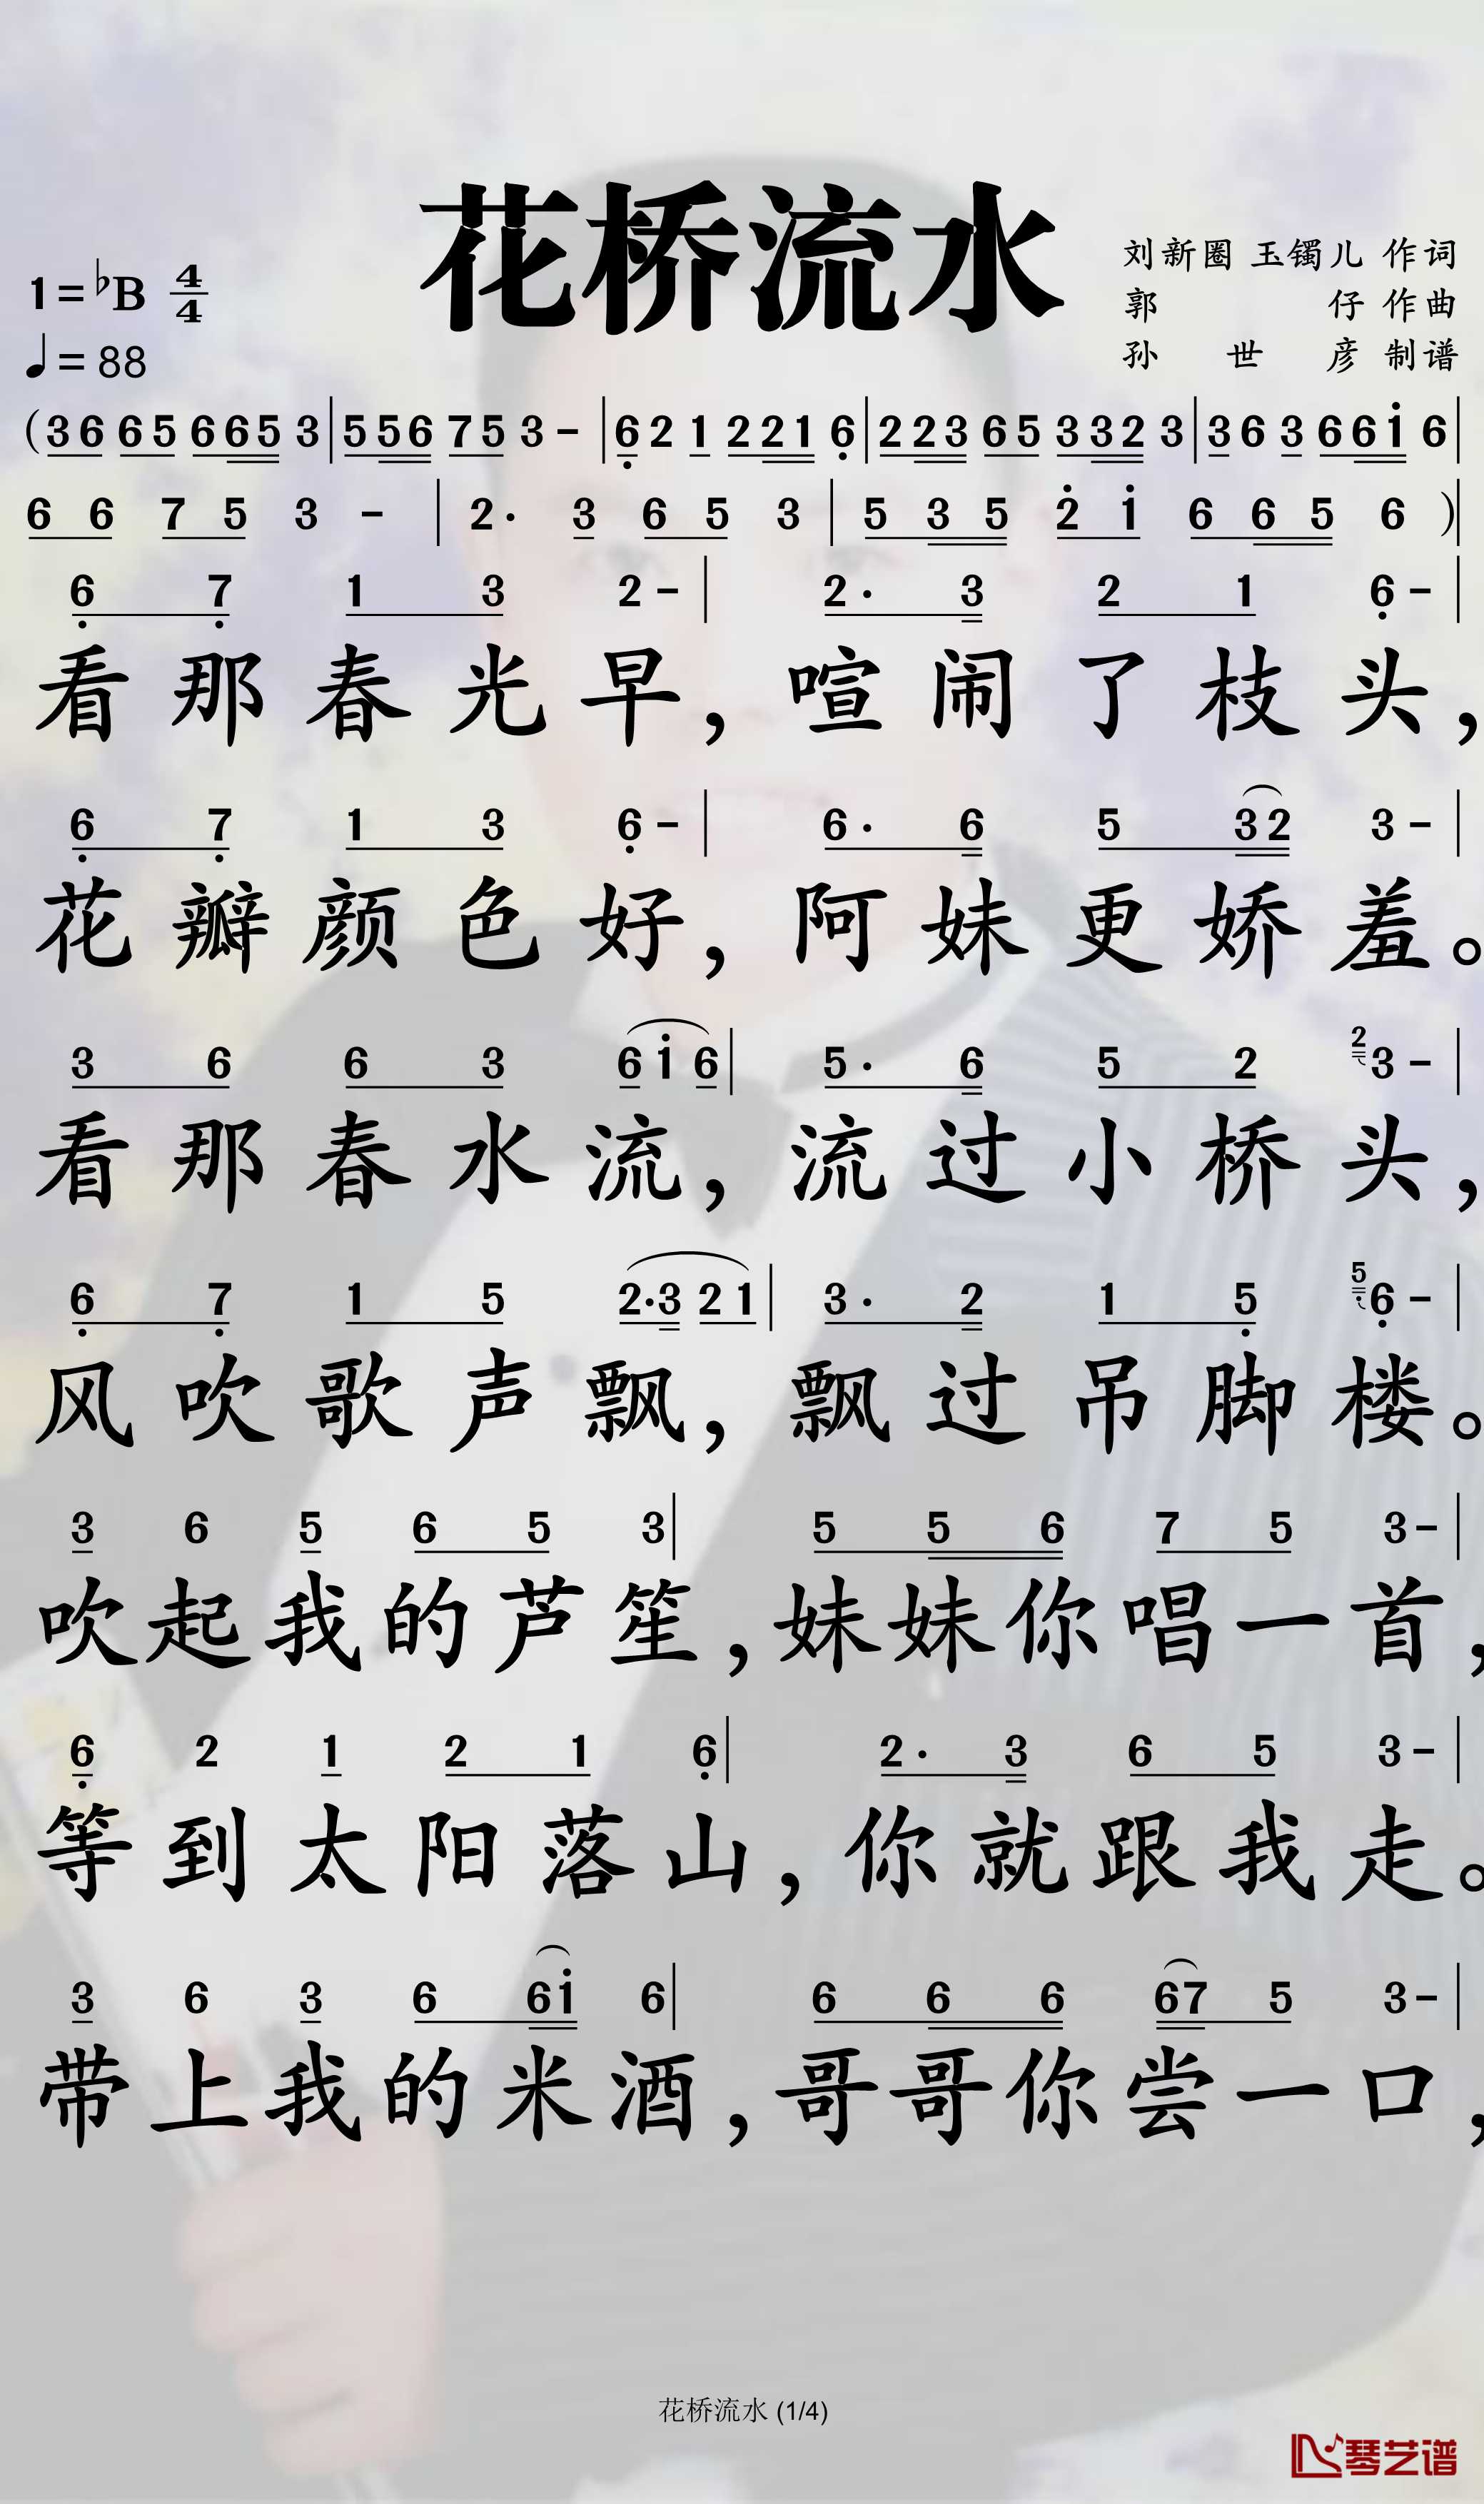 花桥流水
刘新圈 玉镯儿 作词
1=♭B 4/4
郭 仔 作曲
♩=88
孙 世 彦 制谱
(3 6 6 5 6 6 5 3 | 5 5 6 7 5 3 - | 6̣ 2 1 2 2 1 6̣ | 2 2 3 6 5 3 3 2 3 | 3 6 3 6 6 i 6 |
6 6 7 5 3 - | 2· 3 6 5 3 | 5 3 5 2̇ i 6 6 5 6 )|
6̣ 7̣ 1 3 2 - | 2· 3 2 1 6̣ - |
看那春光早，喧闹了枝头，
6̣ 7̣ 1 3 6̣ - | 6· 6 5 3 2 3 - |
花瓣颜色好，阿妹更娇羞。
3 6 6 3 6 i 6 | 5· 6 5 2 2 3 - |
看那春水流，流过小桥头，
6̣ 7̣ 1 5 2·3 2 1 | 3· 2 1 5̣ 5̣ 6̣ - |
风吹歌声飘，飘过吊脚楼。
3 6 5 6 5 3 | 5 5 6 7 5 3 - |
吹起我的芦笙，妹妹你唱一首，
6̣ 2 1 2 1 6̣ | 2· 3 6 5 3 - |
等到太阳落山，你就跟我走。
3 6 3 6 6 i 6 | 6 6 6 6 7 5 3 - |
带上我的米酒，哥哥你尝一口，
花桥流水 (1/4)
琴艺谱